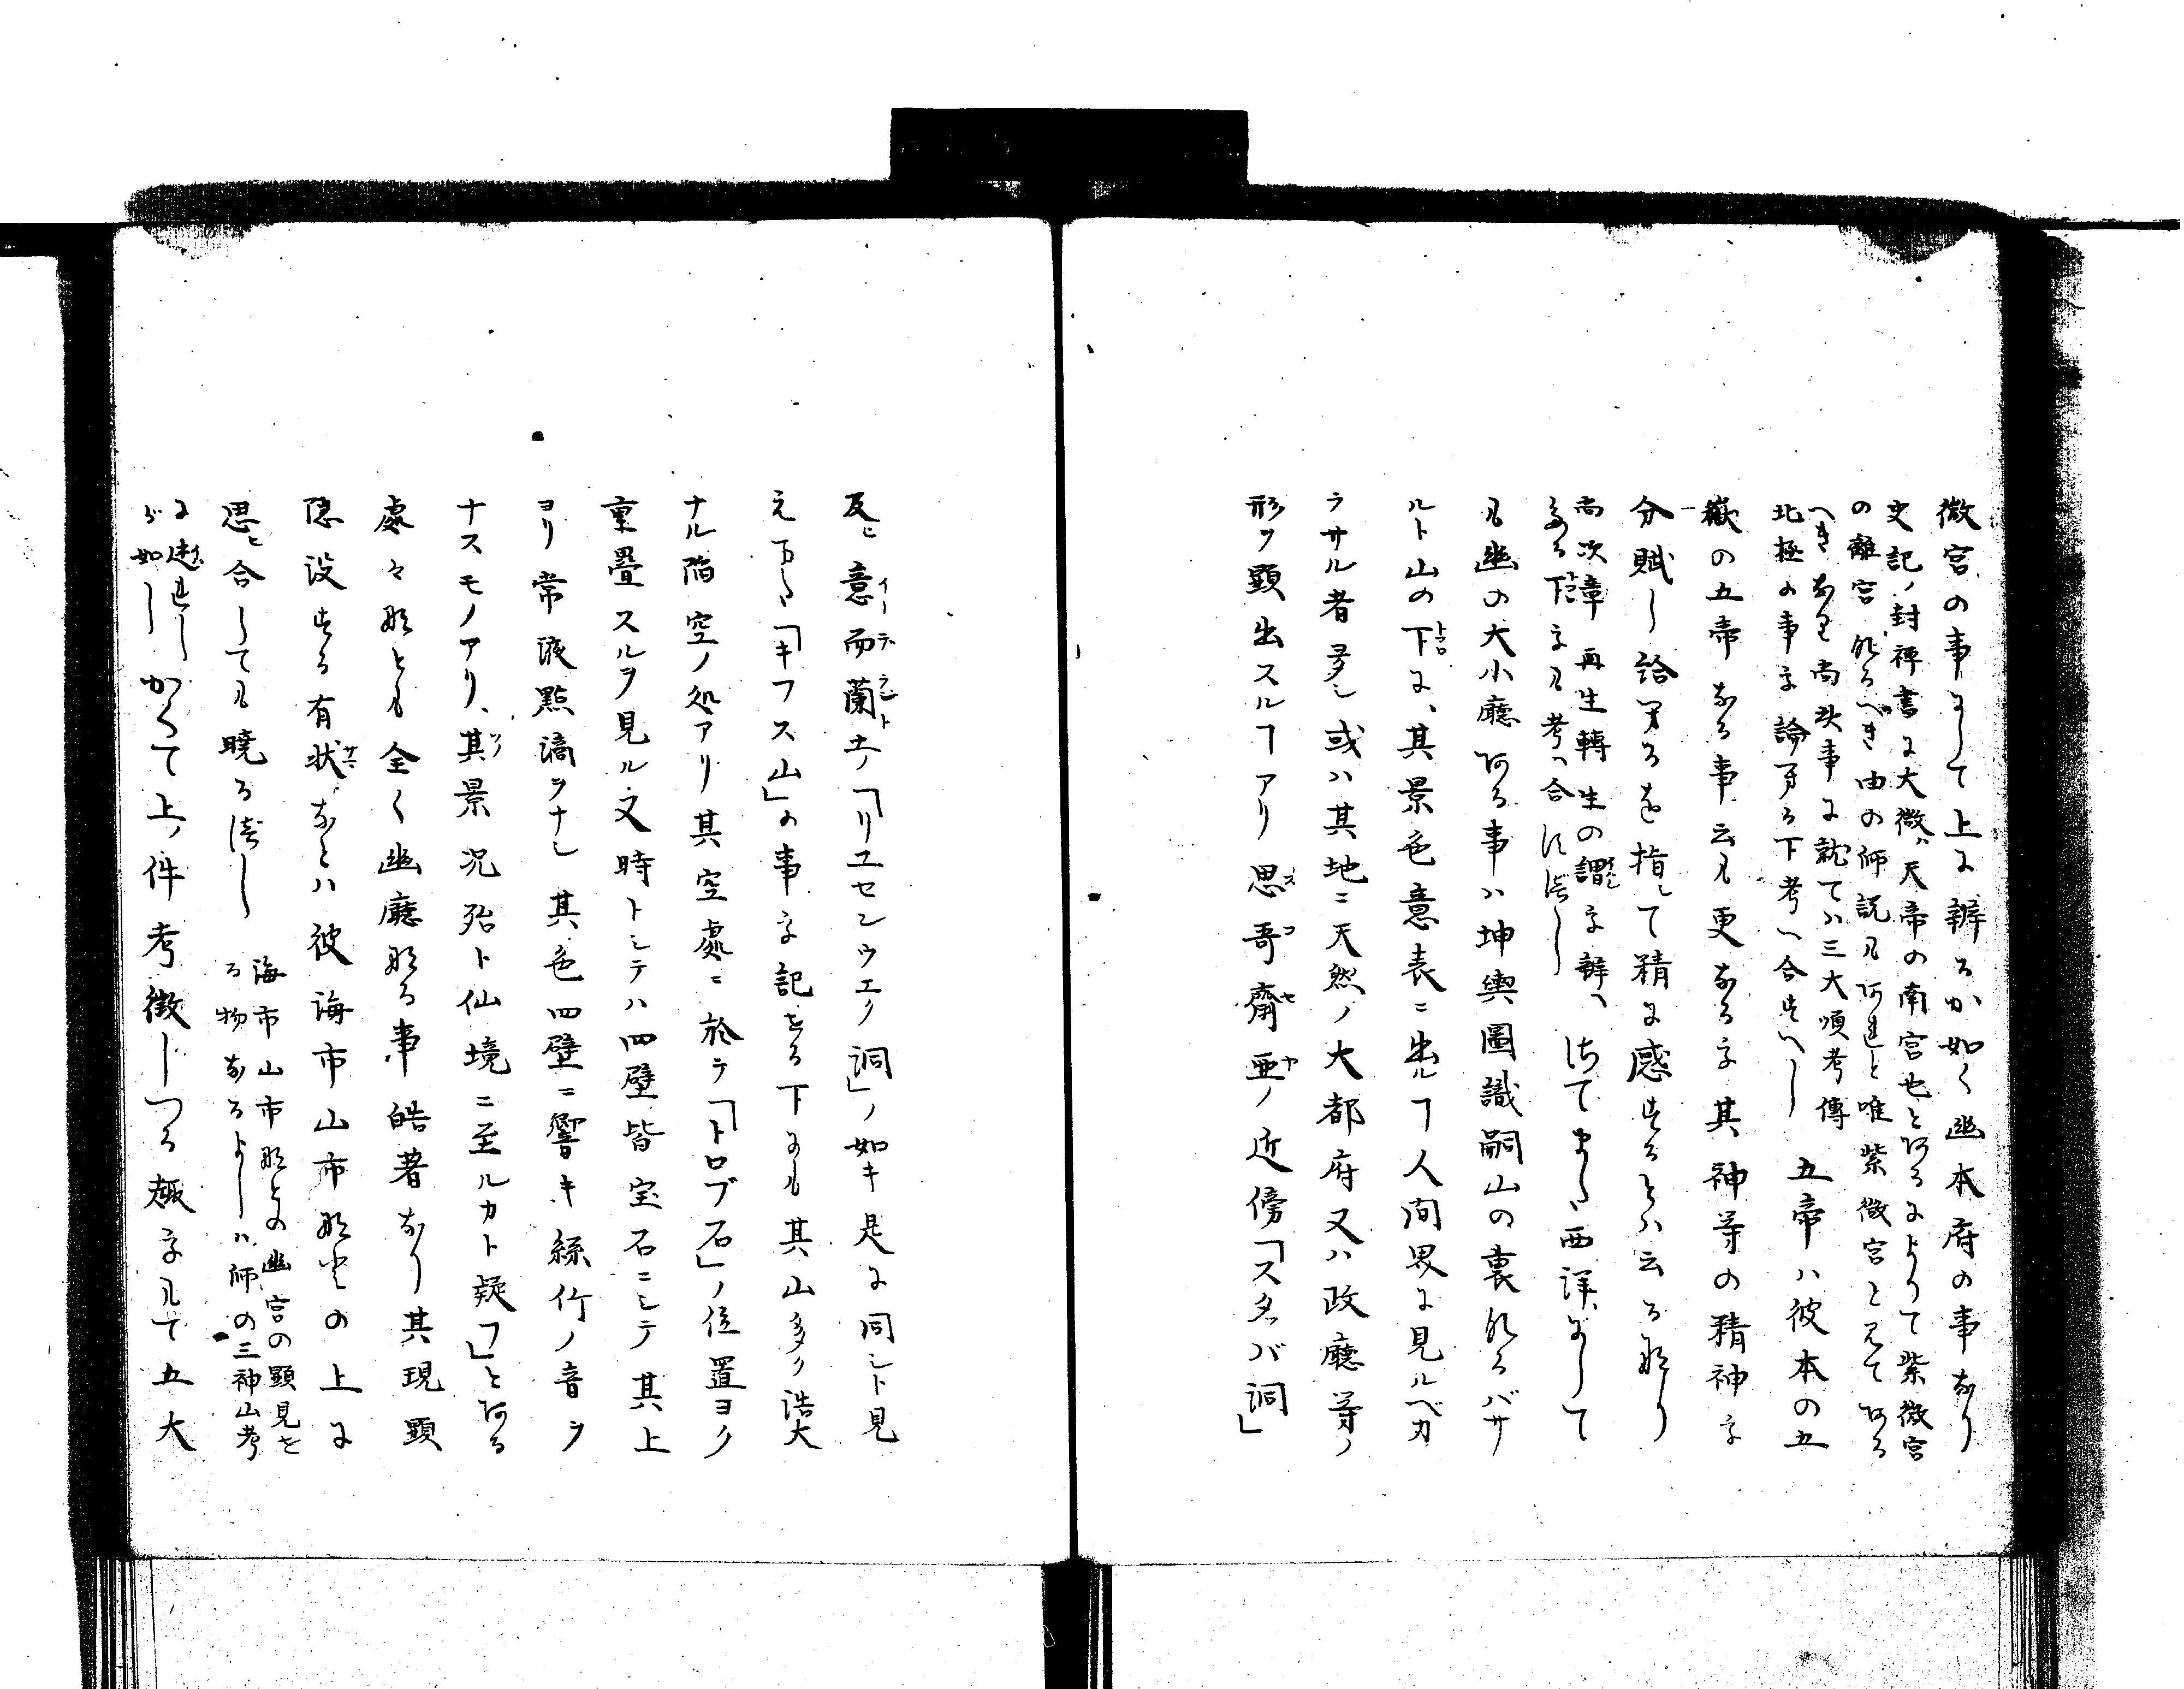 微宮の事にして上に辨るか如く幽本府の事なり
史記ノ封禅書に大微ハ天帝の南宮也と阿るによりて紫微宮
の離宮那るべき由の師説も阿れと唯紫微宮と見て阿る
へきなり尚此事に就てハ三大順考傳
北極の事を論へる下考へ合すへし 五帝ハ彼本の五
嶽の五帝なる事云も更なるを其神等の精神を
分賦し給へるを指して精に感するとハ云る那り
尚次章再生轉生の謂を辨へ
たる下をも考へ合はすへし さてまた西洋にして
も幽の大小廳阿る事ハ坤輿圖識嗣山の裏那るバサ
ルト山の下に、其景色意表ニ出ルヿ人間界に見ルベカ
ラサル者多シ或ハ其地ニ天然ノ大都府又ハ政廳等ノ
形ヲ顕出スルヿアリ思哥齋亜ノ近傍「スタッバ洞」
及ヒ意而蘭土ノ「リユセンウエノ洞」ノ如キ是に同シト見
え又「キフス山」の事を記せる下にも其山多ク浩大
ナル陥空ノ処アリ其空處ニ於テ「トロブ石」ノ位置ヨク
重疊スルヲ見ル又時トシテハ四壁皆宝石ニシテ其上
ヨリ常液點滴ヲナシ其色四壁ニ響キ絲竹ノ音ヲ
ナスモノアリ、其景況殆ト仙境ニ至ルカト疑フ」と阿る
處々那とも全く幽廳那る事皓著なり其現顕
隠没する有状なとハ彼海市山市那との上に
思ヒ合しても暁るべし 海市山市那との幽宮の顕見せ
る物なるよしハ師の三神山考
に述られし
が如し かくて上ノ件考徴しつる趣をもて五大